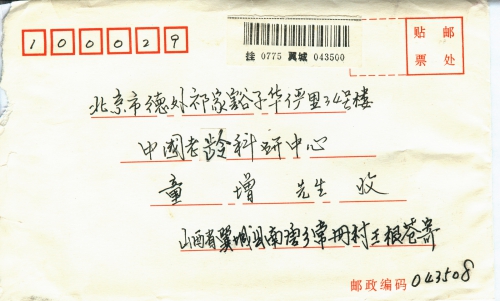 100029
挂 0775 翼城 043500
贴 邮
票 处
北京市德外祁家豁子华俨里34号楼
中國老龄科研中心
童增 先生 收
山西省翼城县南唐乡常册村王根苍寄
邮政编码 043508